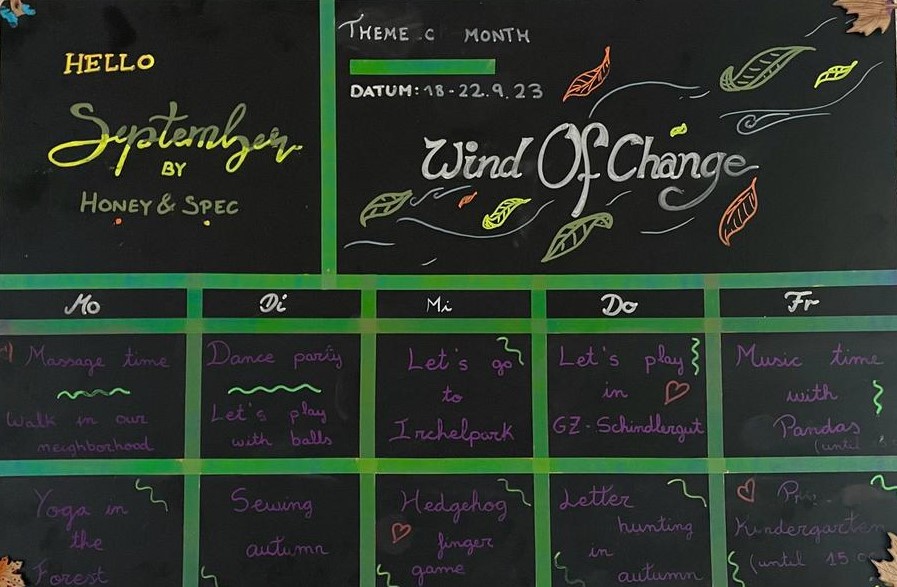 HELLO
September
BY
HONEY & SPEC
THEME C MONTH
DATUM: 18-22.9.23
Wind Of Change
Mo
Di
Mi
Do
Fr
Massage time
Walk in our
neighborhood
Dance party
Let's play
with balls
Let's go
to
Irchelpark
Let's play
in
GZ-Schindlergut
Music time
with
Pandas
(until
Yoga in
the
Forest
Sewing
autumn
Hedgehog
finger
game
Letter
hunting
in
autumn
Kindergarten
(until 15